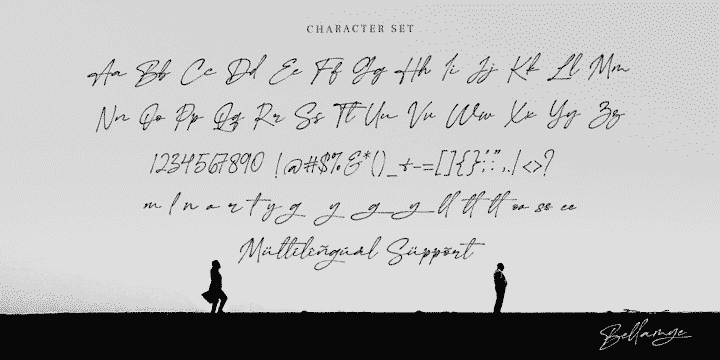 CHARACTER SET
Aa Bb Cc Dd Ee Ff Gg Hh Ii Jj Kk Ll Mm
Nn Oo Pp Qq Rr Ss Tt Uu Vv Ww Xx Yy Zz
1234567890 !@#$%&*()_+-=[]{};':",.|<>?
m l n a r t y g y g y ll tt tt oa ss ee
Mültilingual Süppõrt
Bellamye